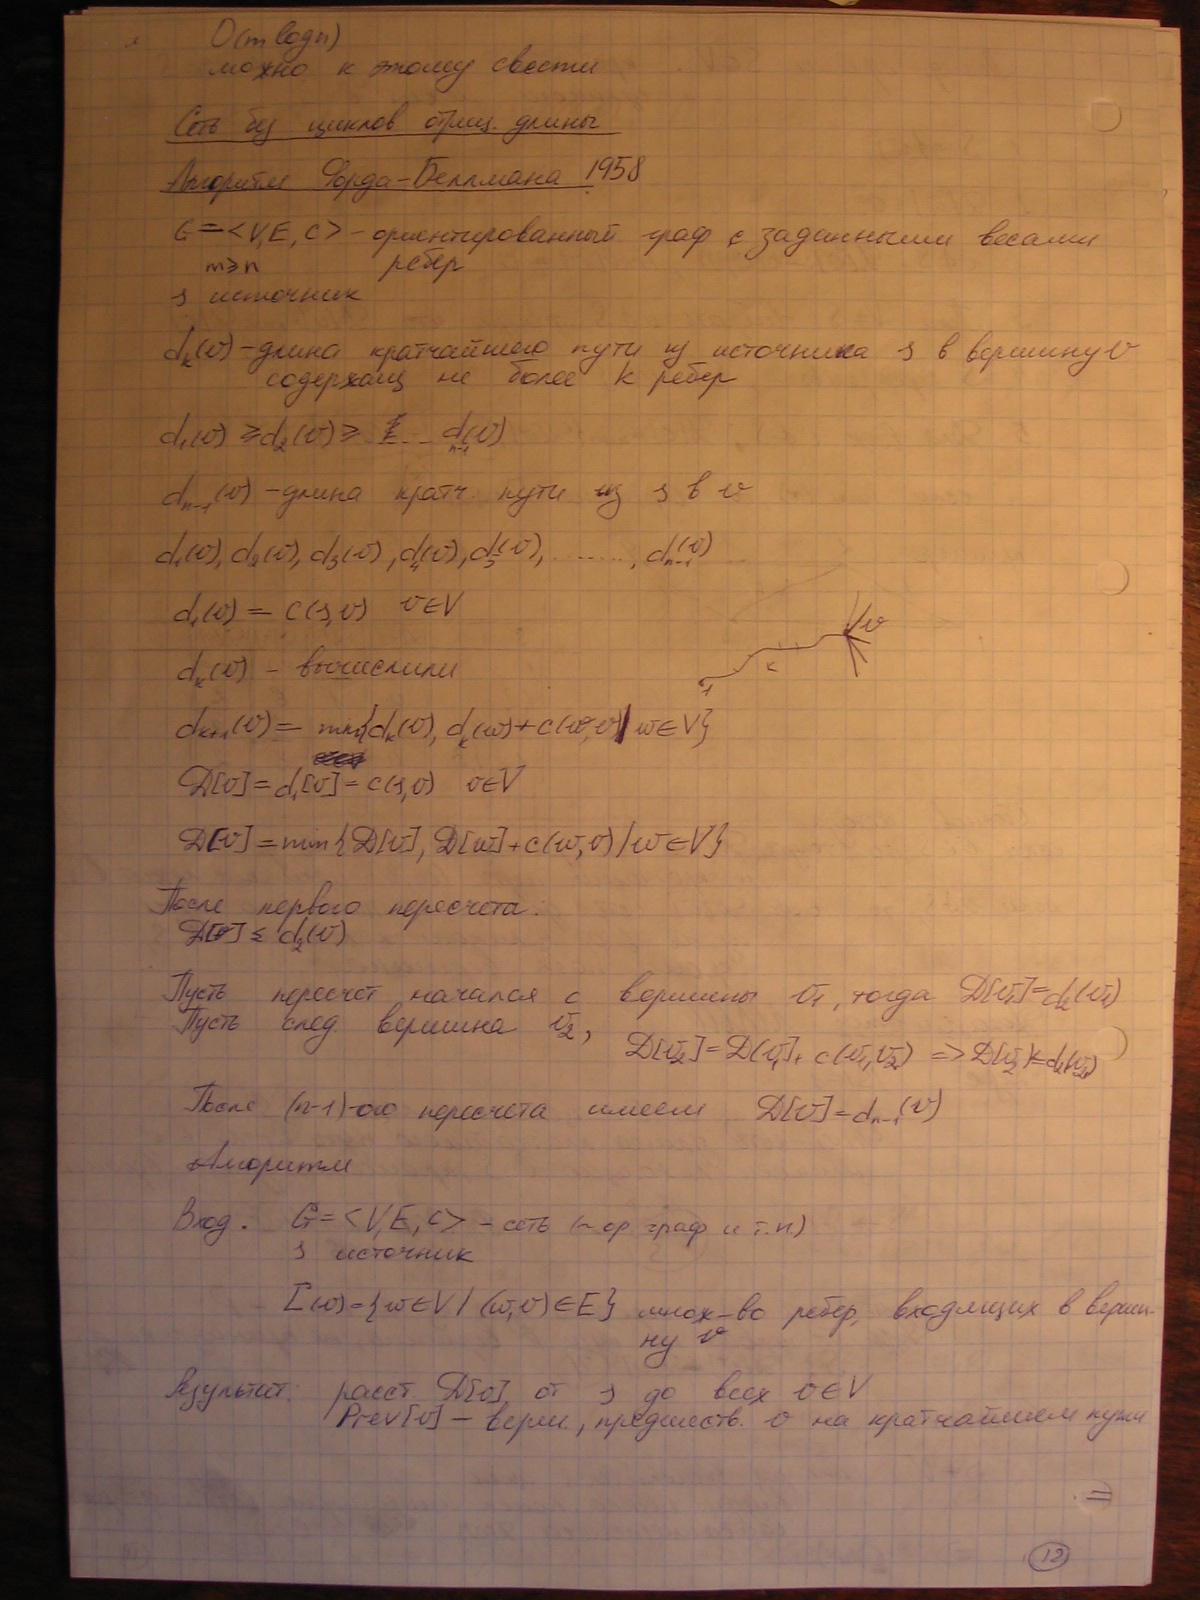 O(m logn)
можно к этому свести
Сеть без циклов отриц. длины
Алгоритм Форда-Беллмана 1958
G=<V,E,C> - ориентированный граф с заданными весами
m≥n ребер
s источник
dₖ(v) - длина кратчайшего пути из источника s в вершину v
содержащ не более k ребер
d₁(v) ≥ d₂(v) ≥ .... dₙ₋₁(v)
dₙ₋₁(v) - длина кратч. пути из s в v
d₁(v), d₂(v), d₃(v), d₄(v), d₅(v), ......, dₙ₋₁(v)
d₁(v) = C(s,v) v∈V
v
dₖ(v) - вычислили
k
s
dₖ₊₁(v) = min{dₖ(v), dₖ(w)+c(w,v) | w∈V}
D[v] = d₁[v] = c(s,v) v∈V
D[v] = min{D[v], D[w]+c(w,v) | w∈V}
После первого пересчета:
D[v] ≤ d₂(v)
Пусть пересчет начался с вершины v₁, тогда D[v₁]=d₂(v₁)
Пусть след вершина v₂,
D[v₂]=D(v₁]+c(v₁,v₂) => D[v₂]≤d₂(v₂)
После (n-1)-ого пересчета имеем D[v]=dₙ₋₁(v)
Алгоритм
Вход. G=<V,E,C> - сеть (~ ор граф и т.п)
s источник
[(v)={w∈V | (w,v)∈E} множ-во ребер, входящих в верши-
ну v
Результат: расст D[v] от s до всех v∈V
Prev[v] - верш., предшеств. v на кратчайшем пути
=
12